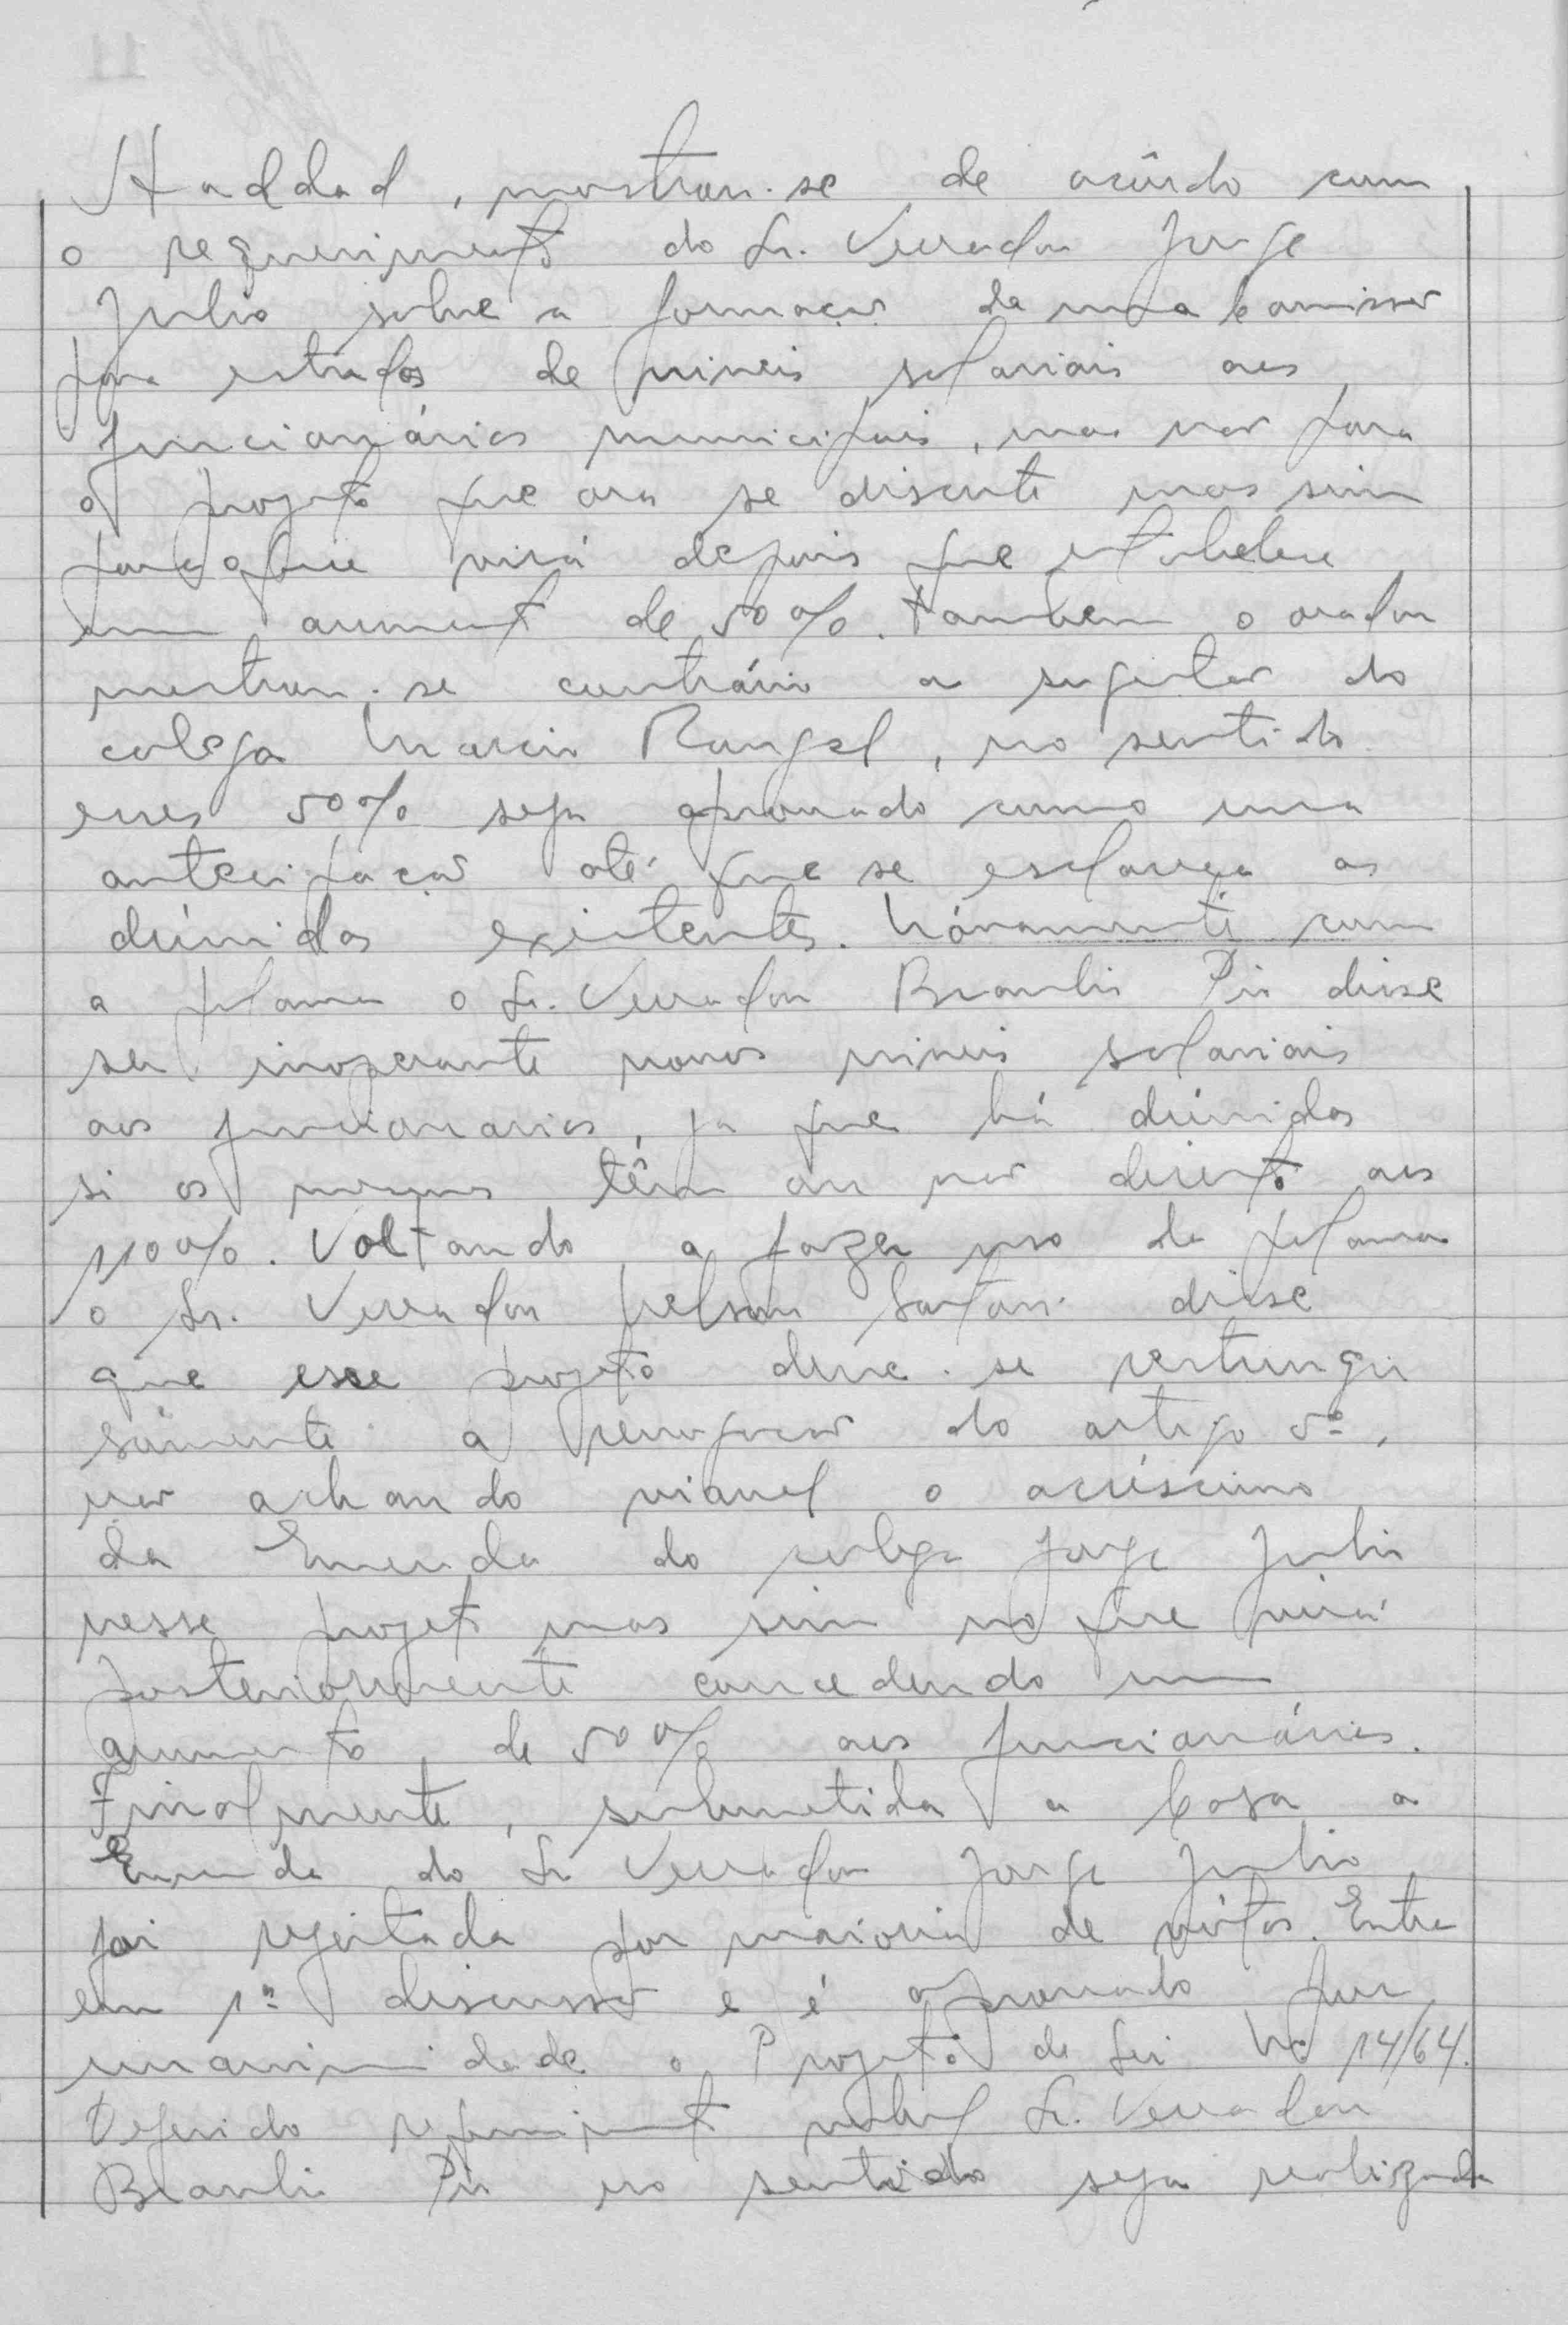 Haddad, mostrou-se de acôrdo com
o requerimento do Sr. Vereador Jorge
Julio sobre a formação de uma Comissão
para estudos de niveis salariais aos
funcionários municipais, mas não para
o projeto que ora se discute mas sim
para o que virá depois que estabelece
um aumento de 50%. Tambem o orador
mostrou-se contrário a sugestão do
colega Marcio Rangel, no sentido
esses 50% seja aprovado como uma
antecipação até que se esclareça as
dúvidas existentes. Nóvamente com
a palavra o Sr. Vereador Braulio Pio disse
ser inoperante novos niveis salariais
aos funcionarios, ja que há dúvidas
si os mesmos têm ou não direito aos
110%. Voltando a fazer uso da palavra
o Sr. Vereador Nelson Sartori disse
que esse projeto deve-se restringir
sómente a revogação do artigo 5º,
não achando viavel o acréscimo
da Emenda do colega Jorge Julio
nesse projeto mas sim no que virá
posteriormente concedendo um
aumento de 50% aos funcionários.
Finalmente, submetida a Casa a
Emenda do Sr Vereador Jorge Julio
foi rejeitada por maioria de vótos. Entra
em 1ª discussão e é aprovado por
unanimidade o Projeto de Lei No 14/64.
Deferido requerimento verbal Sr. Vereador
Braulio Pio no sentido seja realizada